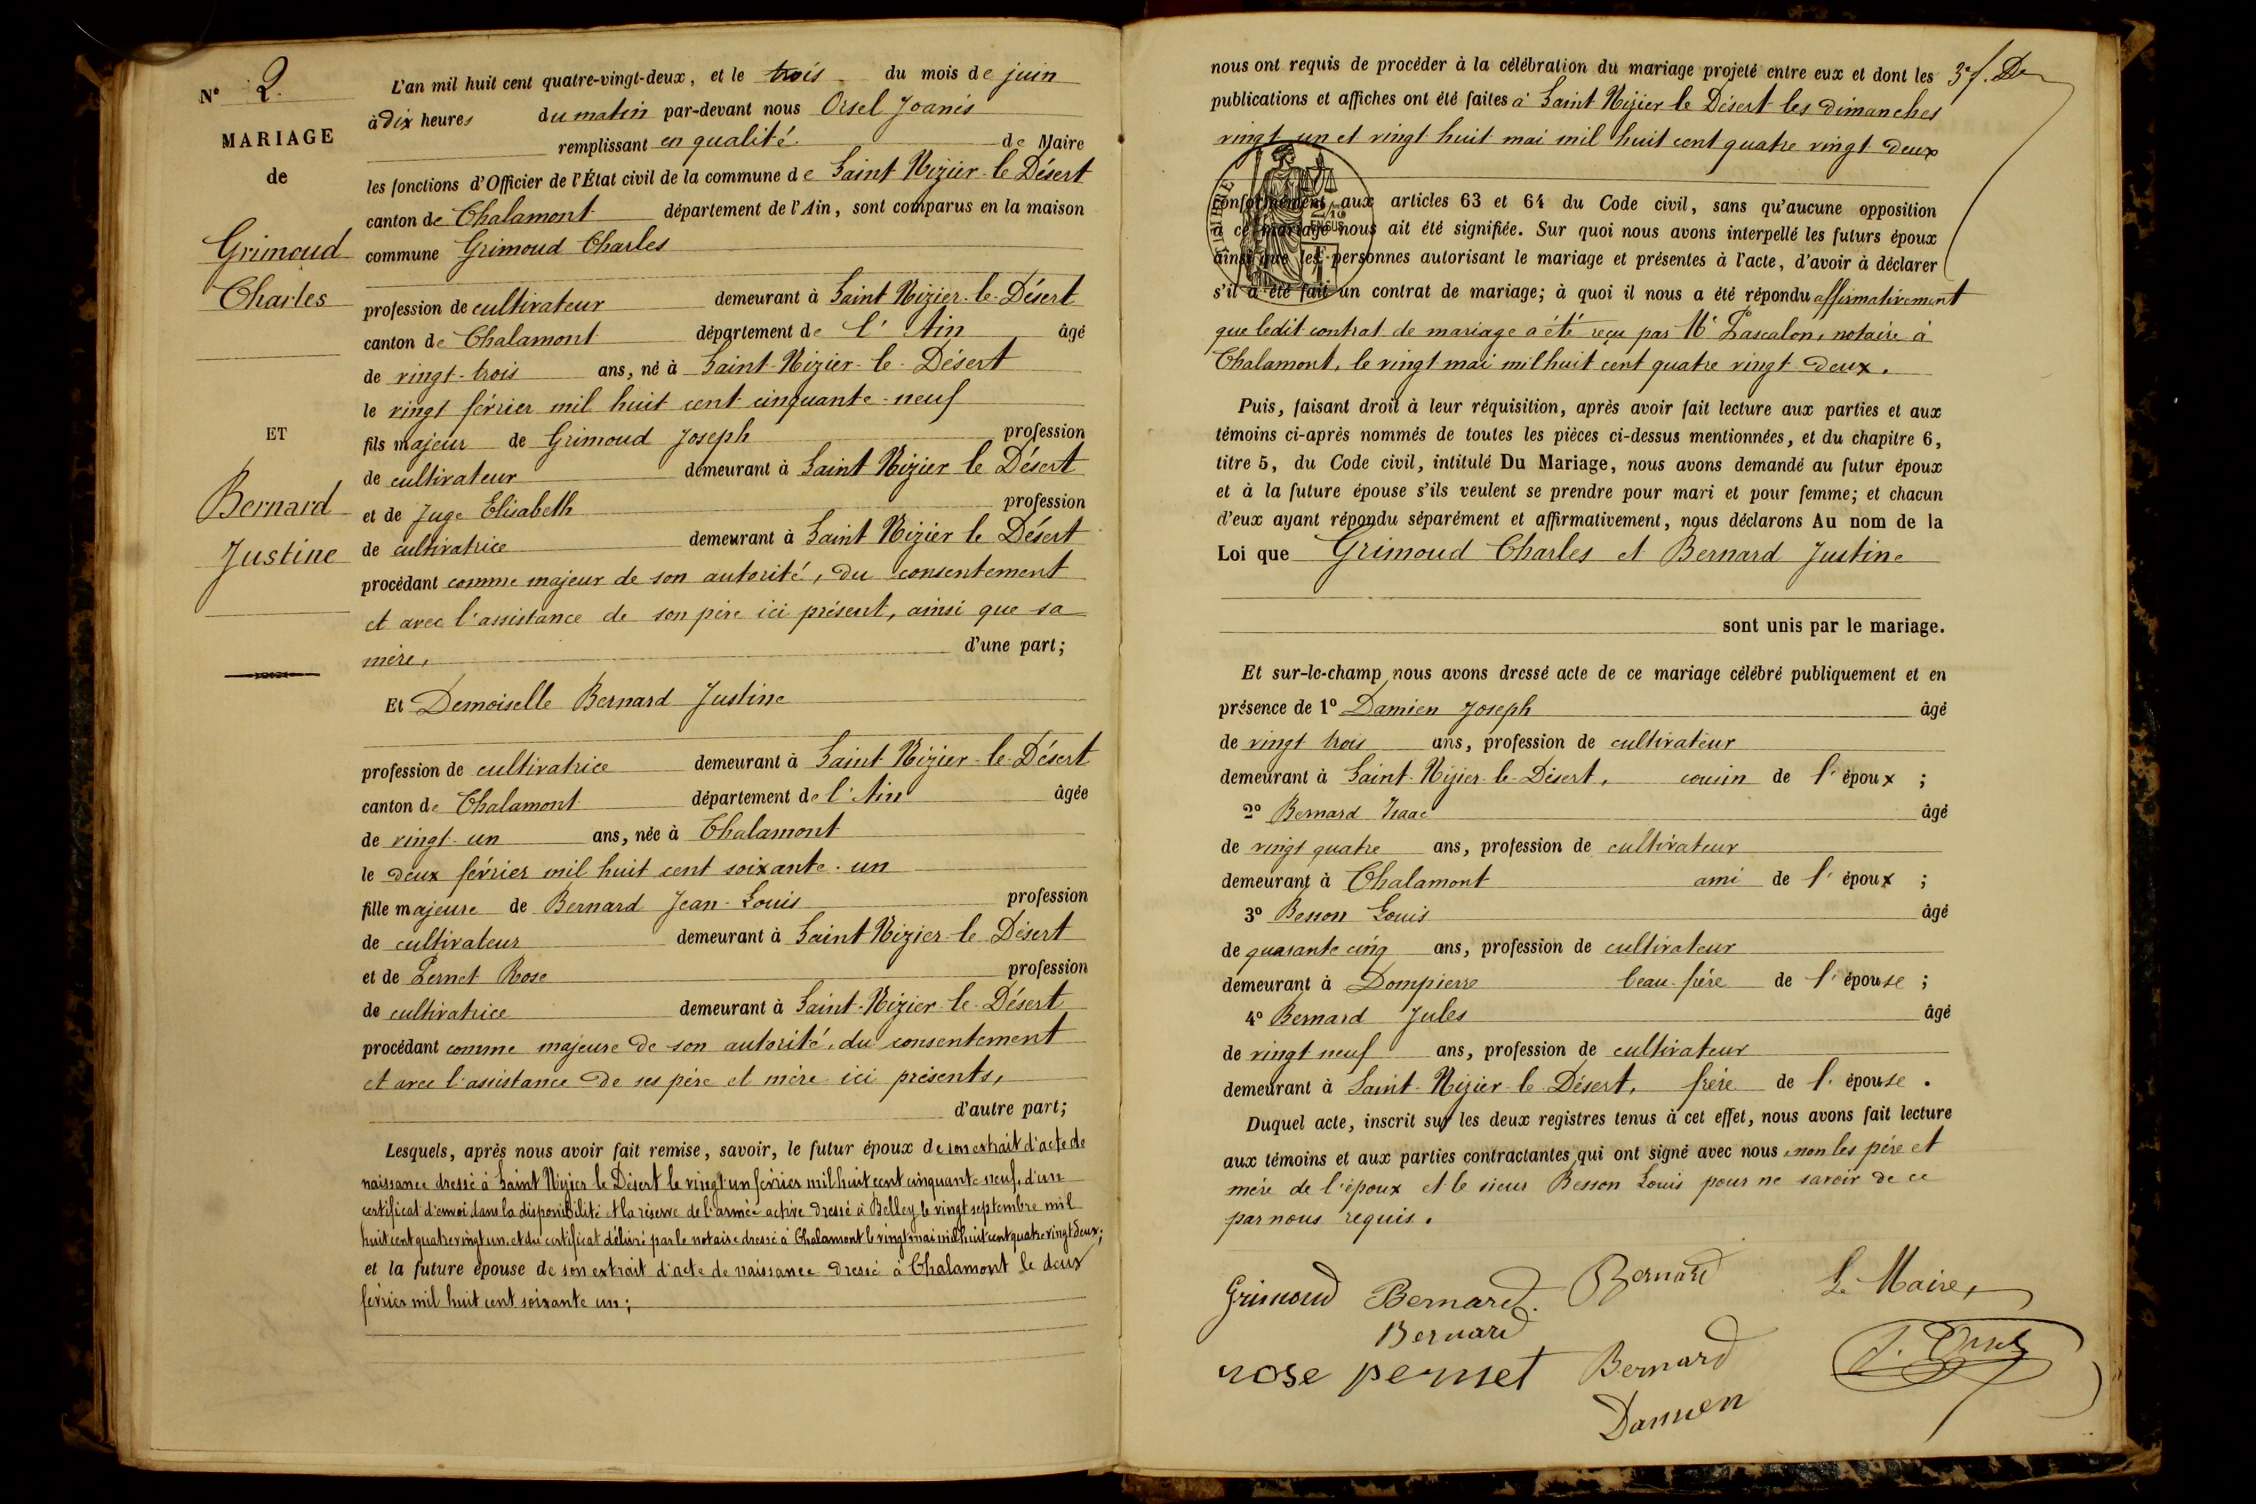 N° 2.
MARIAGE
de
Grimoud
Charles
ET
Bernard
Justine
L'an mil huit cent quatre-vingt-deux, et le trois du mois de juin
à dix heures du matin par-devant nous Orsel Joanès
remplissant en qualité de Maire
les fonctions d'Officier de l'État civil de la commune de Saint Nizier-le-Désert
canton de Chalamont département de l'Ain, sont comparus en la maison
commune Grimoud Charles
profession de cultivateur demeurant à Saint Nizier-le-Désert
canton de Chalamont département de l'Ain âgé
de vingt-trois ans, né à Saint-Nizier-le-Désert
le vingt février mil huit cent cinquante-neuf
fils majeur de Grimoud Joseph profession
de cultivateur demeurant à Saint Nizier le Désert
et de Juge Elisabeth profession
de cultivatrice demeurant à Saint Nizier le Désert
procédant comme majeur de son autorité, du consentement
et avec l'assistance de son père ici présent, ainsi que sa
mère, d'une part;
Et Demoiselle Bernard Justine
profession de cultivatrice demeurant à Saint Nizier-le-Désert
canton de Chalamont département de l'Ain âgée
de vingt-un ans, née à Chalamont
le deux février mil huit cent soixante-un
fille majeure de Bernard Jean-Louis profession
de cultivateur demeurant à Saint Nizier-le-Désert
et de Pernet Rose profession
de cultivatrice demeurant à Saint-Nizier-le-Désert
procédant comme majeure de son autorité, du consentement
et avec l'assistance de ses père et mère ici présents,
d'autre part;
Lesquels, après nous avoir fait remise, savoir, le futur époux de son extrait d'acte de
naissance dressé à Saint Nizier le Désert le vingt un février mil huit cent cinquante neuf, d'un
certificat d'envoi dans la disponibilité et la réserve de l'armée active dressé à Belley le vingt septembre mil
huit cent quatre vingt un, et du certificat délivré par le notaire dressé à Chalamont le vingt mai mil huit cent quatre vingt deux;
et la future épouse de son extrait d'acte de naissance dressé à Chalamont le deux
février mil huit cent soixante un;
nous ont requis de procéder à la célébration du mariage projeté entre eux et dont les
publications et affiches ont été faites à Saint Nizier le Désert les dimanches
vingt-un et vingt huit mai mil huit cent quatre vingt deux
conformément aux articles 63 et 64 du Code civil, sans qu'aucune opposition
à ce mariage nous ait été signifiée. Sur quoi nous avons interpellé les futurs époux
ainsi que les personnes autorisant le mariage et présentes à l'acte, d'avoir à déclarer
s'il a été fait un contrat de mariage; à quoi il nous a été répondu affirmativement
que ledit contrat de mariage a été reçu par Me Pascalon, notaire à
Chalamont, le vingt mai mil huit cent quatre vingt deux.
Puis, faisant droit à leur réquisition, après avoir fait lecture aux parties et aux
témoins ci-après nommés de toutes les pièces ci-dessus mentionnées, et du chapitre 6,
titre 5, du Code civil, intitulé Du Mariage, nous avons demandé au futur époux
et à la future épouse s'ils veulent se prendre pour mari et pour femme; et chacun
d'eux ayant répondu séparément et affirmativement, nous déclarons Au nom de la
Loi que Grimoud Charles et Bernard Justine
sont unis par le mariage.
Et sur-le-champ nous avons dressé acte de ce mariage célébré publiquement et en
présence de 1° Damien Joseph âgé
de vingt trois ans, profession de cultivateur
demeurant à Saint-Nizier-le-Désert, cousin de l'époux ;
2° Bernard Isaac âgé
de vingt quatre ans, profession de cultivateur
demeurant à Chalamont ami de l'époux ;
3° Besson Louis âgé
de quarante cinq ans, profession de cultivateur
demeurant à Dompierre beau-frère de l'épouse ;
4° Bernard Jules âgé
de vingt neuf ans, profession de cultivateur
demeurant à Saint-Nizier-le-Désert, frère de l'épouse.
Duquel acte, inscrit sur les deux registres tenus à cet effet, nous avons fait lecture
aux témoins et aux parties contractantes qui ont signé avec nous, non les père et
mère de l'époux et le sieur Besson Louis pour ne savoir de ce
par nous requis.
Grimoud Bernard. Bernard Le Maire,
Bernard
rose pernet Bernard J. Orsel
Damien